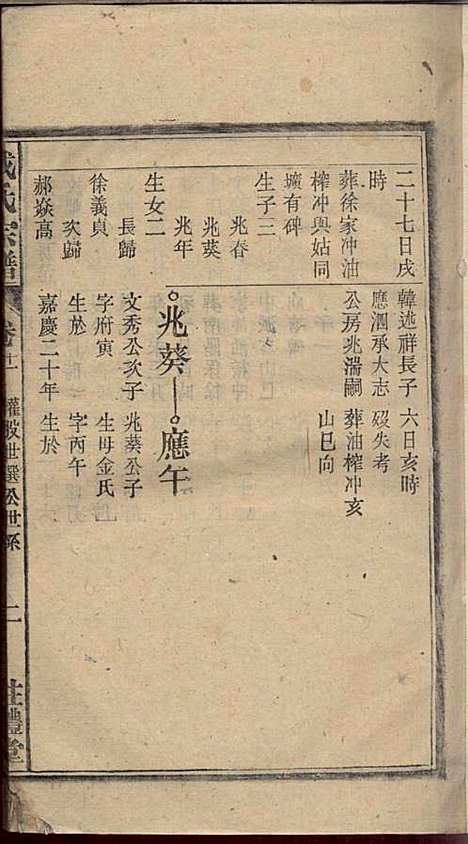 二十七日戌
時
葬徐家冲油
榨冲與姑同
壙有碑
生子三
兆春
兆英
兆年
生女二
長歸
徐義貞
次歸
郝焱高
韓述祥長子
應泗承大志
公房兆湍嗣
六日亥時
歿失考
葬油榨冲亥
山巳向
兆葵
應午
文秀公次子
字府寅
生於
嘉慶二十年
兆葵公子
生母金氏
字丙午
生於
氏宗譜
卷十二
權股世選公世系
二
禮堂